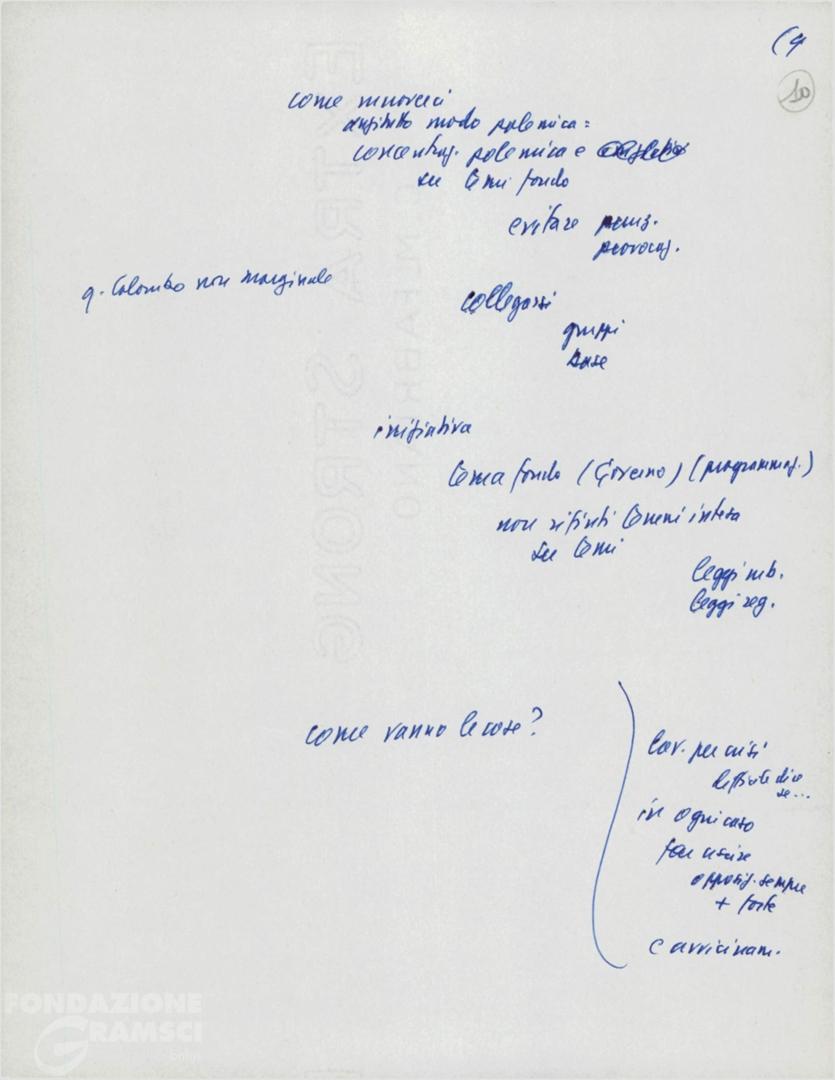 (9
10
come muoverci
anzitutto modo polemica =
concentraz. polemica e
su temi fondo
evitare
provocaz.
q. Colombo non marginale
collegarsi
gruppi
base
iniziativa
tema fondo (Governo) (programmaz.)
non rifiuti terreni intesa
su temi
leggi urb.
leggi reg.
come vanno le cose?
lav. per crisi
difficile dire
se...
in ogni caso
far uscire
opposiz. sempre
+ forte
e avvicinam.
EXTRA STRONG
FABRIANO
FONDAZIONE
GRAMSCI